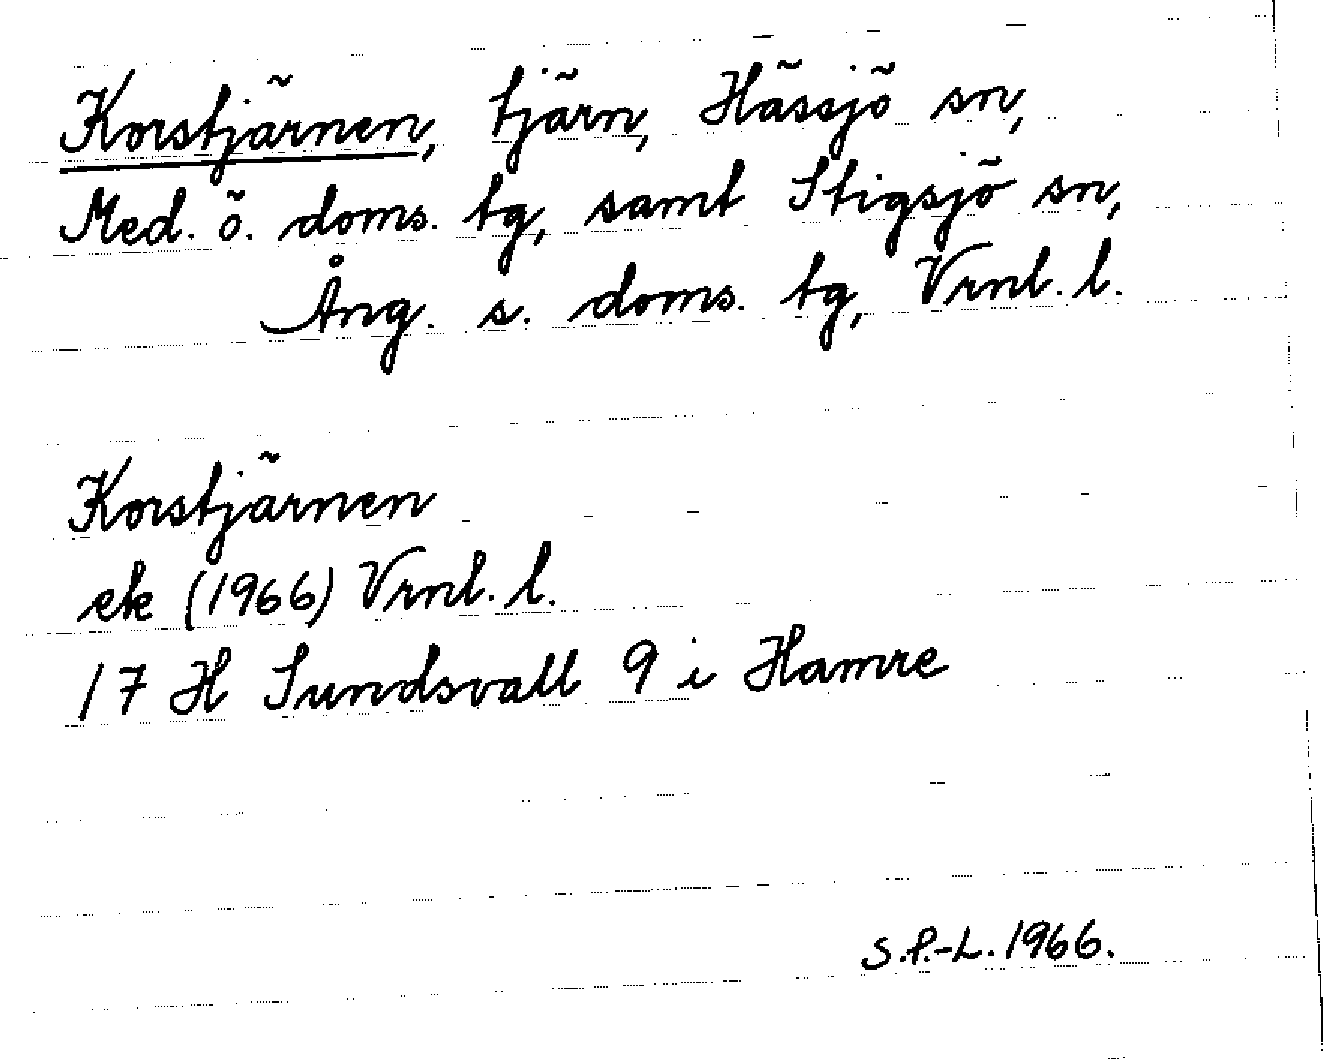 Korstjärnen, tjärn, Hässjö sn,
Med. ö. doms. tg, samt Stigsjö sn,
Ång. s. doms. tg, Vrnl. l.
Korstjärnen
ek (1966) Vrnl. l.
17 H Sundsvall 9 i Hamre
S.P.-L. 1966.